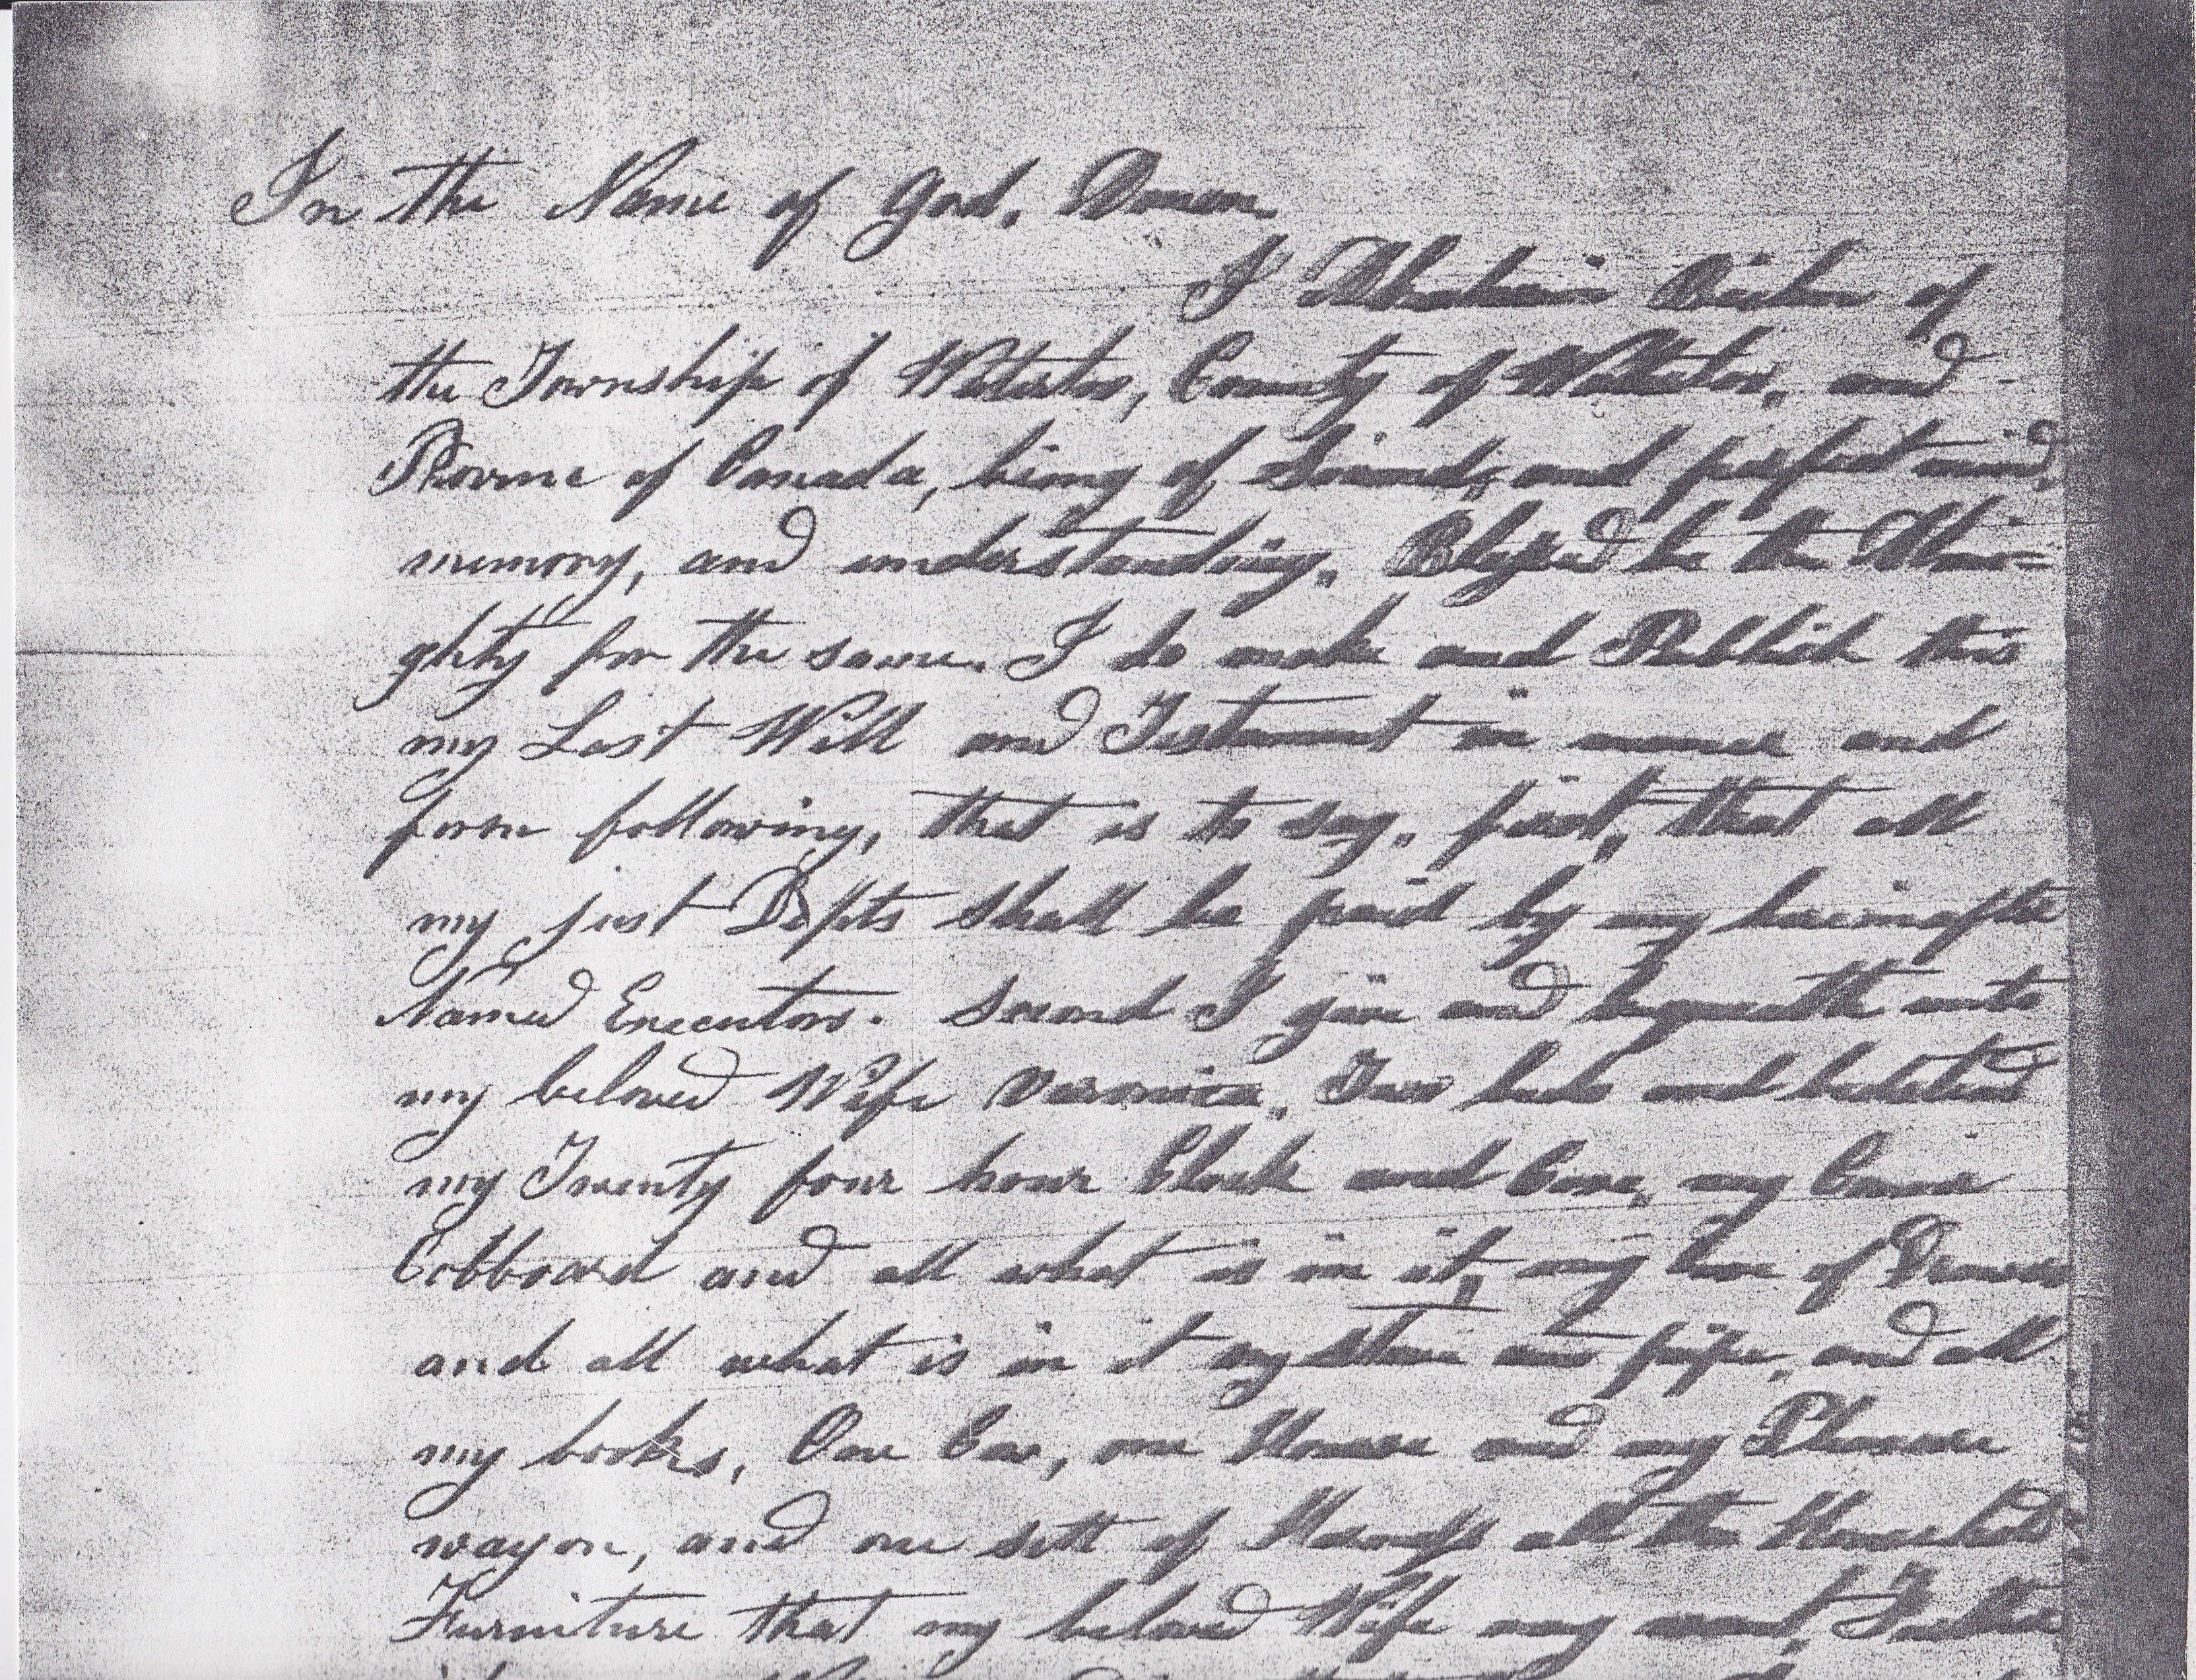 In the Name of God. Amen.
I Abraham of
the Township of Waterloo, County of Waterloo, and
Provine of Canada, being of Sound, and perfect mind,
memory, and understanding, Blessed be the Almi=
ghty for the same. I do make and Publish this
my Last Will and Testament in and
form following, that is to say, first, that all
my just Depts shall be paid by my hereinafter
Named Executors. Second I give and bequeath unto
my beloved Wife Varonica, Two beds and bedstead
my Twenty four hour Clock and Case, my
Cobboard and all what is in it, my of Drawers
and all what is in it my stove and pipe, and all
my books, One Cow, one Horse and my Pleasure
wagon, and one sett of Harness all the Household
Furniture that my beloved Wife may want, Further